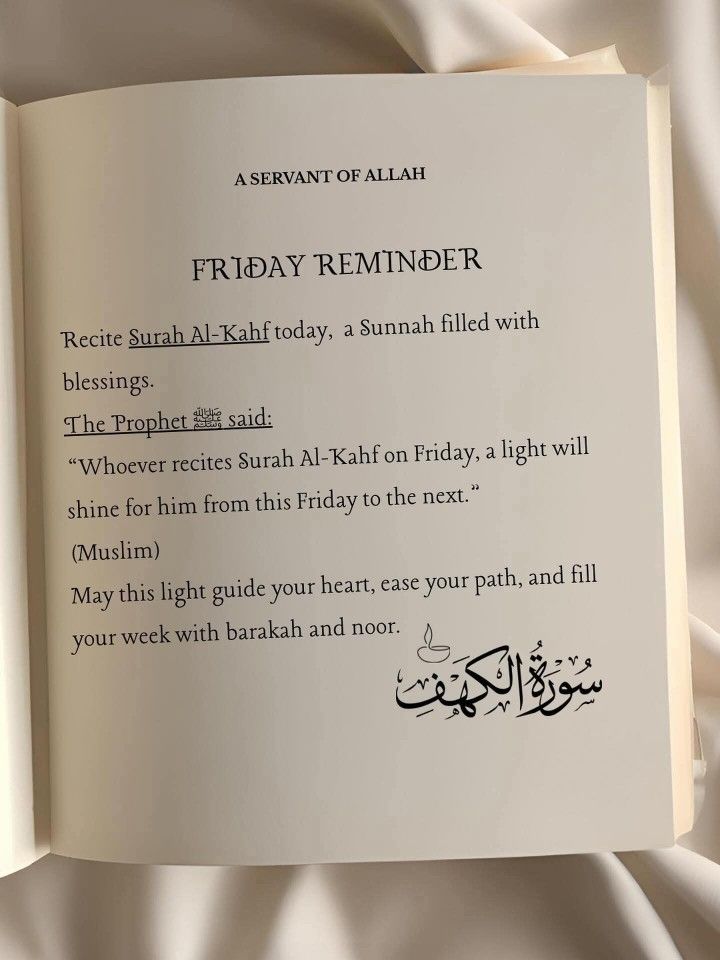 A SERVANT OF ALLAH
FRIDAY REMINDER
Recite Surah Al-Kahf today, a Sunnah filled with
blessings.
The Prophet ﷺ said:
“Whoever recites Surah Al-Kahf on Friday, a light will
shine for him from this Friday to the next.”
(Muslim)
May this light guide your heart, ease your path, and fill
your week with barakah and noor.
سُورَةُ الكَهَفِ